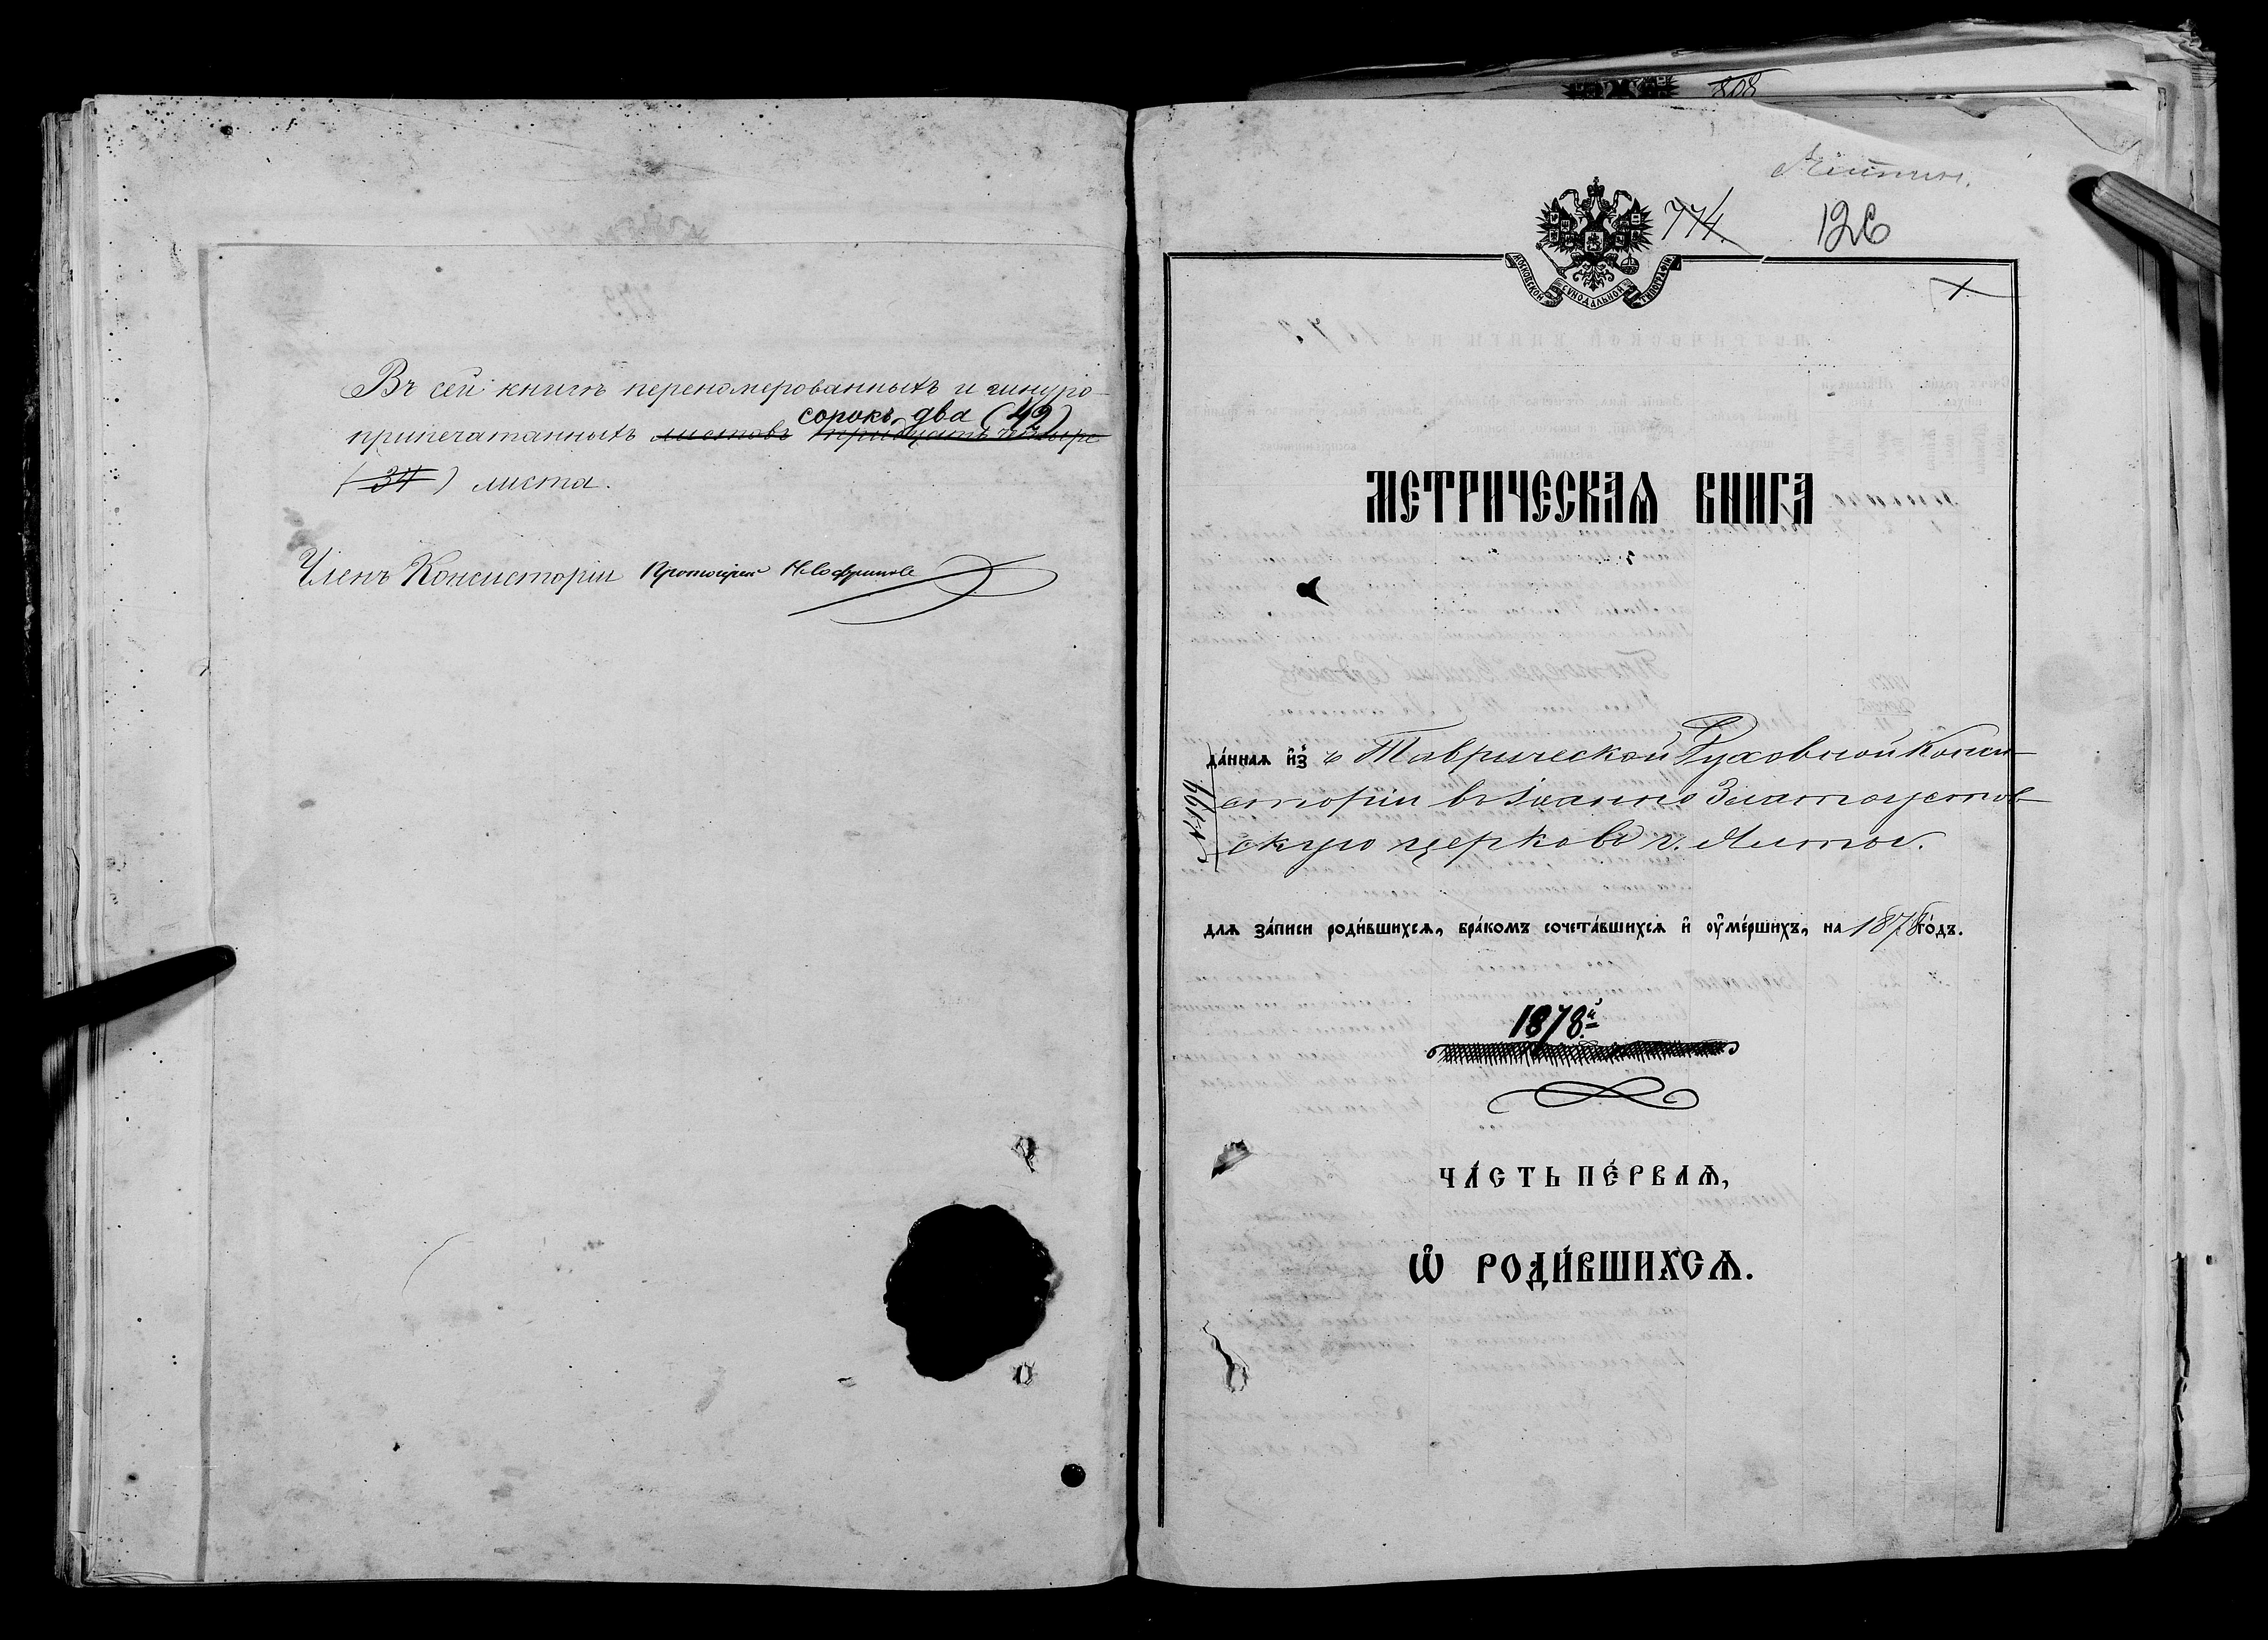 Въ сей книгѣ перенумерованныхъ и шнуро-
припечатанныхъ листовъ тридцать четыре
сорокъ два (42)
(34) листа.
Членъ Консисторіи Протоіерей
808
774.
126
МОСКОВСКОЙ СѴНОДАЛЬНОЙ ТИПОГРАФІИ
МЕТРИЧЕСКАѦ КНИГА
да́ннаѧ и҆з̾ Таврической Духовной Конси-
сторіи въ Іоанно Златоустов-
скую церковь г. Ялты.
длѧ за́писи роди́вшихсѧ, бра́комъ сочета́вшихсѧ и҆ ᲂу҆ме́ршихъ, на 1878 го́дъ.
1878й
ЧА́СТЬ ПЕ́РВАѦ,
Ѽ РОДИ́ВШИХСѦ.